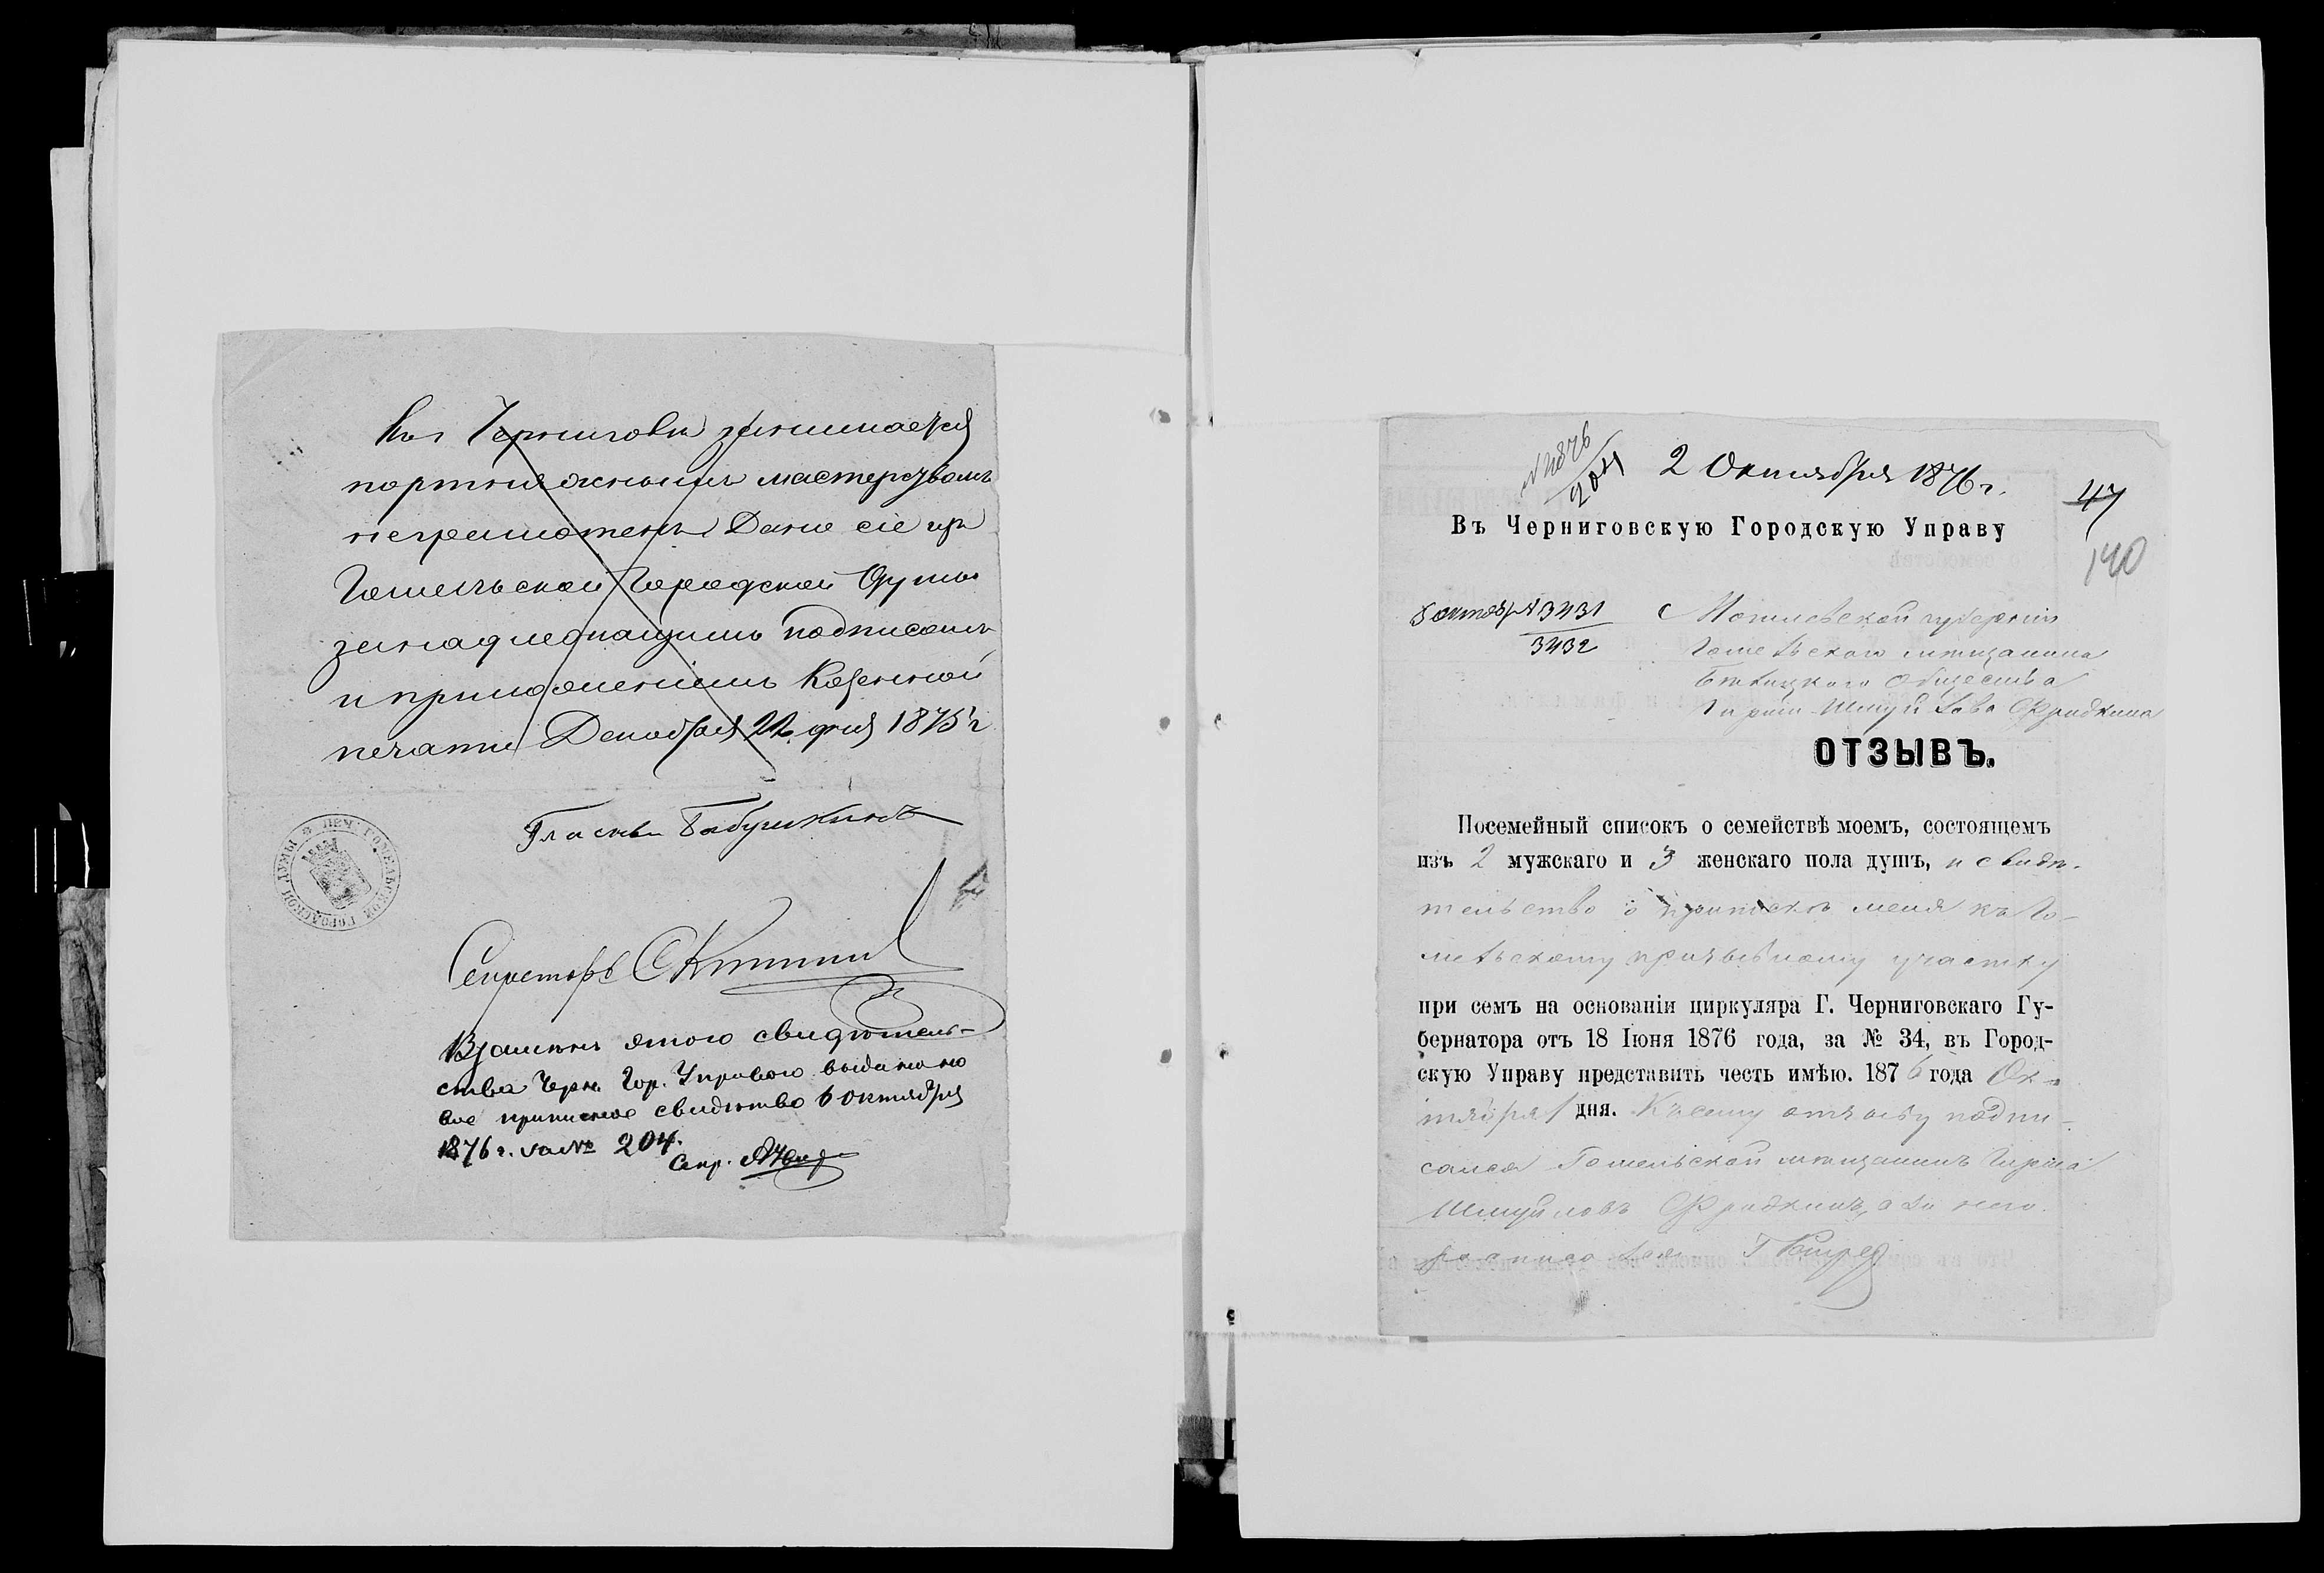 Въ г Черниговѣ занимается
портняжнымъ мастерствомъ
неграмотенъ Дано сіе изъ
Гомельской Городской Думы
за надлежащимъ подписомъ
и приложеніемъ Казенной
печати Декабря 22 дня 1875 г
Гласный Бабушкинъ
ПЕЧ. ГОМЕЛЬСКОЙ ГОРОДСКОЙ ДУМЫ
Секретарь
Взаменъ этого свидѣтель-
ства Черн. Гор. Управою выдано но
вое приписное свидѣтво 6 октября
1876 г. за № 204.
Секр.
204
2 Октября 1876 г.
47
140
Въ Черниговскую Городскую Управу
8 октяб. № 3431
3432
Могилевской губерніи
Гомельскаго мѣщанина
Бѣлицкаго Общества
Гирши Шмуйлова Фридкина
ОТЗЫВЪ.
Посемейный списокъ о семействѣ моемъ, состоящемъ
изъ 2 мужскаго и 3 женскаго пола душъ, и свидѣ-
тельство о припискѣ меня къ Го-
мельскому призывному участку
при семъ на основаніи циркуляра Г. Черниговскаго Гу-
бернатора отъ 18 Іюня 1876 года, за № 34, въ Город-
скую Управу представить честь имѣю. 1876 года Ок-
тября 1 дня. Къ сему отзыву подпи-
сался Гомельской мѣщанинъ Гирша
Шмуйловъ Фридкинъ, а за него
росписался